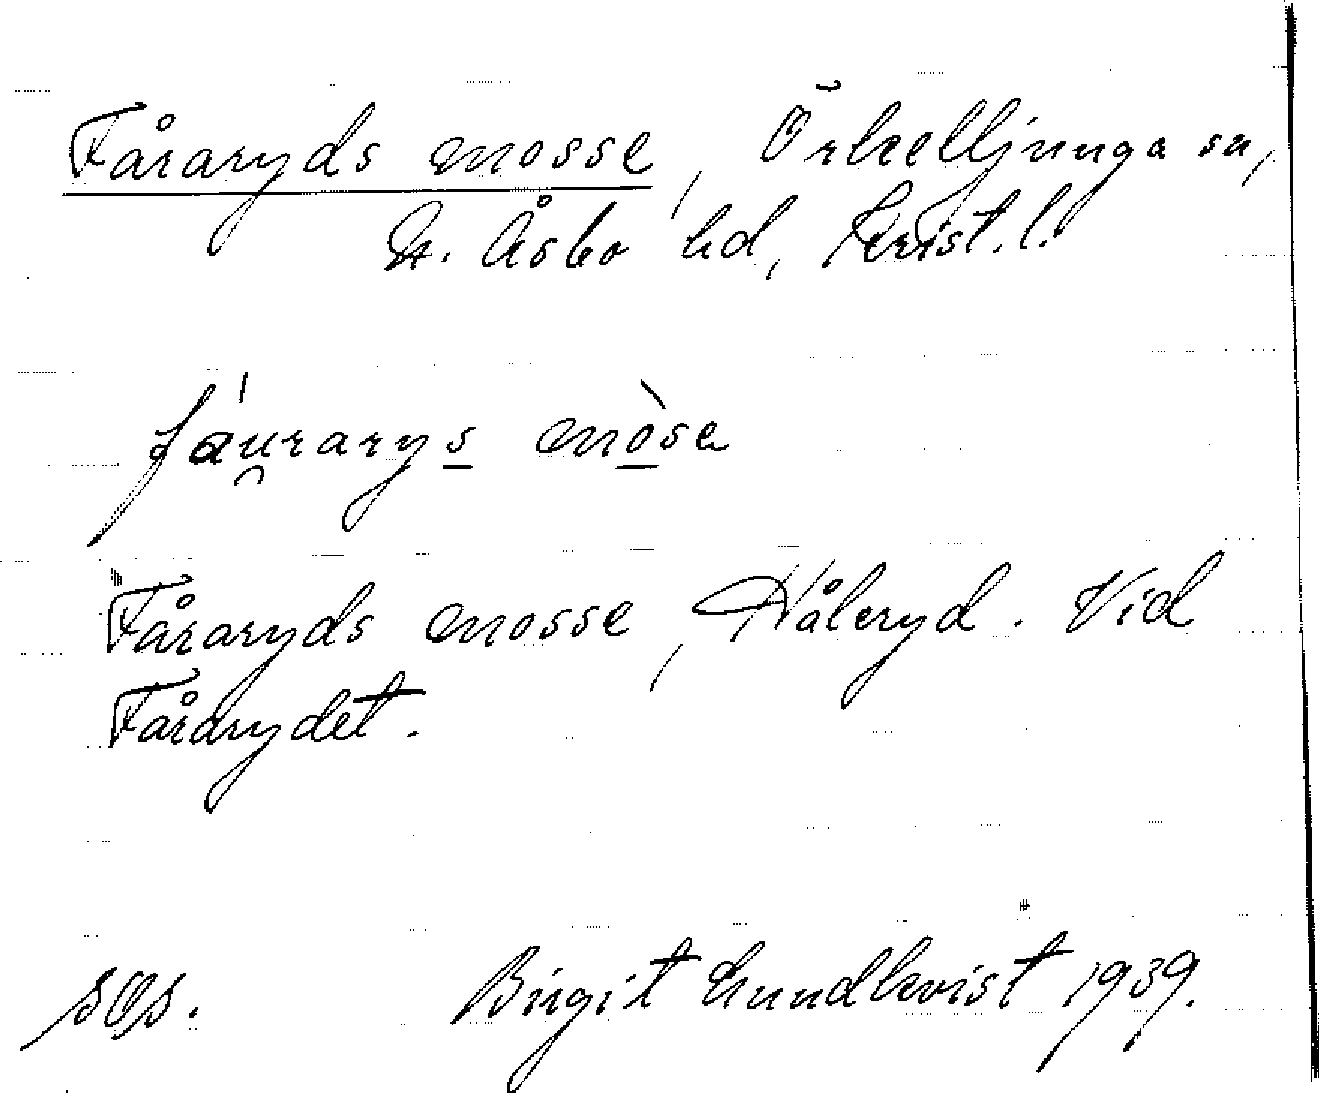 Fåraryds mosse, Örkelljunga sn,
N. Åsbo hd, Krist. l.
fáu̯rarys mòse
Fåraryds mosse, Håleryd. Vid
Fårarydet.
SOS. Birgit Lundkvist 1939.